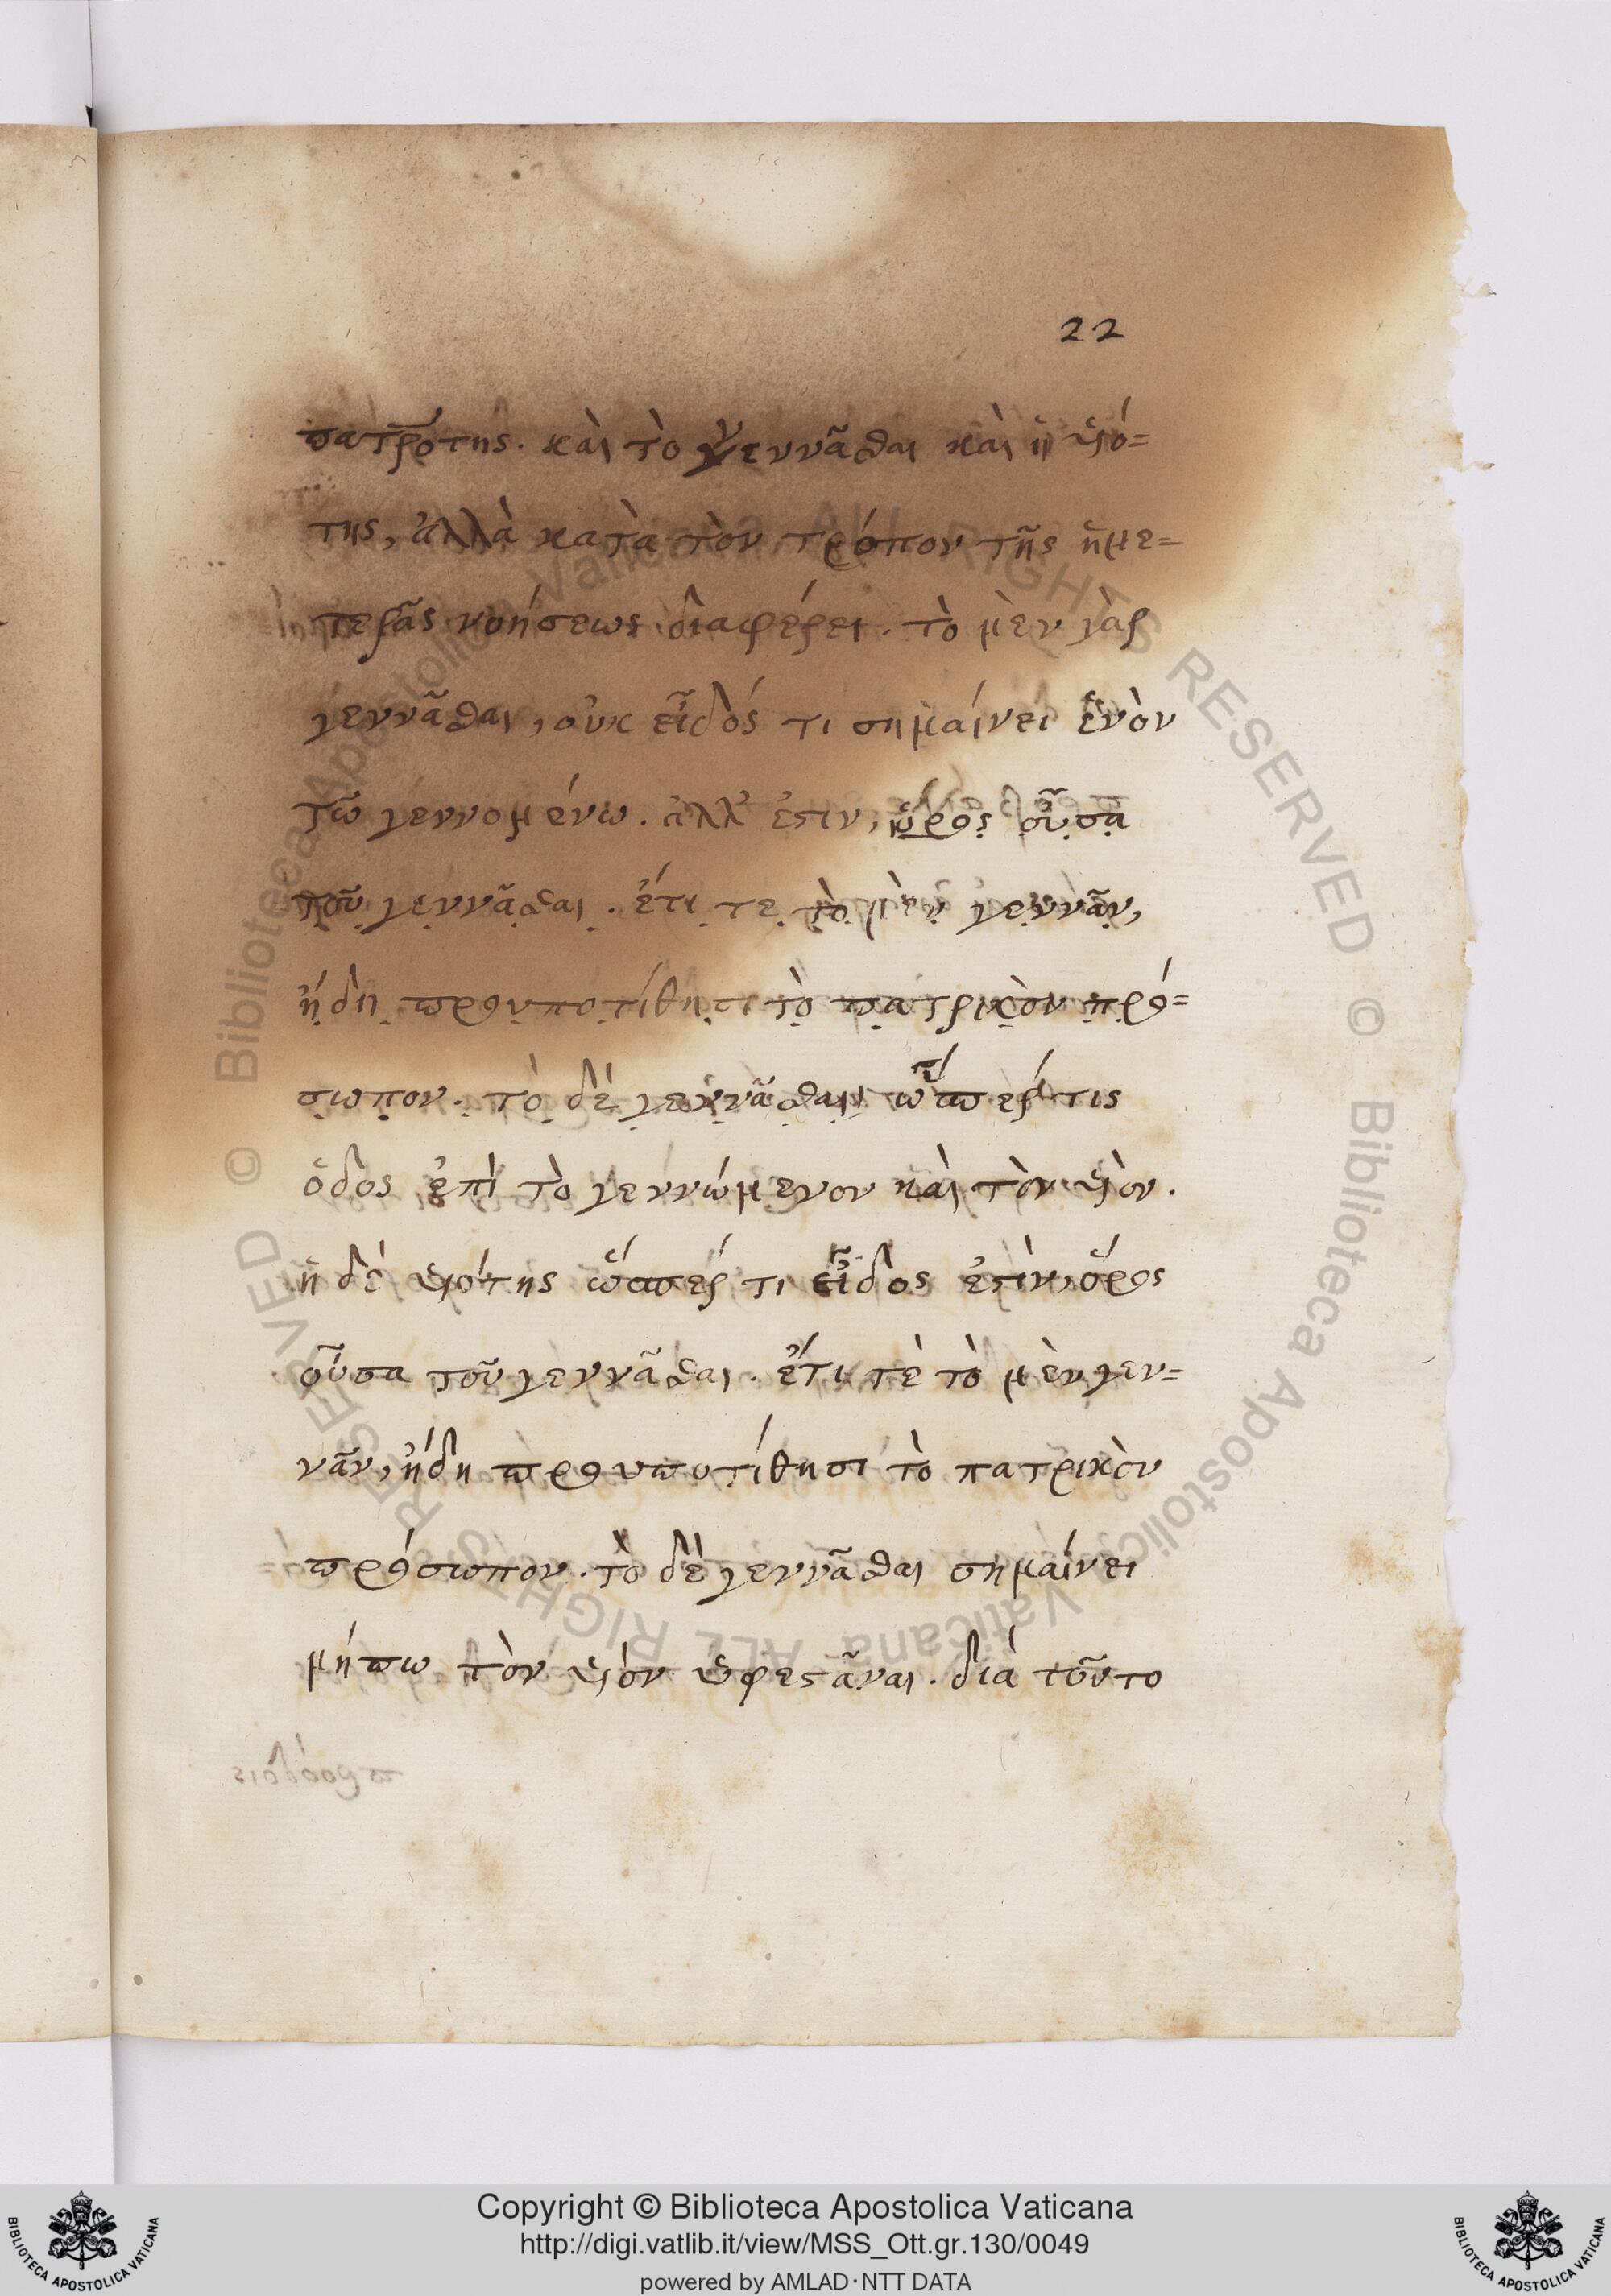 22
πατρότης. καὶ τὸ γεννᾶσθαι καὶ ἡ υἱό=
της, ἀλλὰ κατὰ τὸν τρόπον τῆς ἡμε=
τερας νοήσεως διαφέρει. τὸ μὲν γὰρ
γεννᾶσθαι, οὐκ εἶδός τι σημαίνει ἐνὸν
τῶ γεννομένω. ἀλλ' ἐστιν, ὅρος οὖσα
τοῦ γεννᾶσθαι. ἔτι τε τὸ μὲν γεννᾶν,
ἤδη προυποτίθησι τὸ πατρικὸν πρό=
σωπον. τὸ δὲ γεννᾶσθαι ὥσπερ τις
ὁδος ἐπὶ τὸ γεννώμενον καὶ τὸν υἱὸν.
ἡ δὲ υἱότης ὥσπέρ τι εἶδος ἐστὶν ὅρος
οὖσα τοῦ γεννᾶσθαι. ἔτι τὲ τὸ μὲν γεν=
νᾶν, ἤδη προυποτίθησι τὸ πατρικὸν
πρόσωπον. τὸ δὲ γεννᾶσθαι σημαίνει
μήπω τὸν υἱὸν ὑφεστᾶναι. διὰ τοῦτο
Copyright © Biblioteca Apostolica Vaticana
http://digi.vatlib.it/view/MSS_Ott.gr.130/0049
powered by AMLAD·NTT DATA
© Biblioteca Apostolica Vaticana ALL RIGHTS RESERVED © Biblioteca Apostolica Vaticana ALL RIGHTS RESERVED
BIBLIOTECA APOSTOLICA VATICANA
BIBLIOTECA APOSTOLICA VATICANA